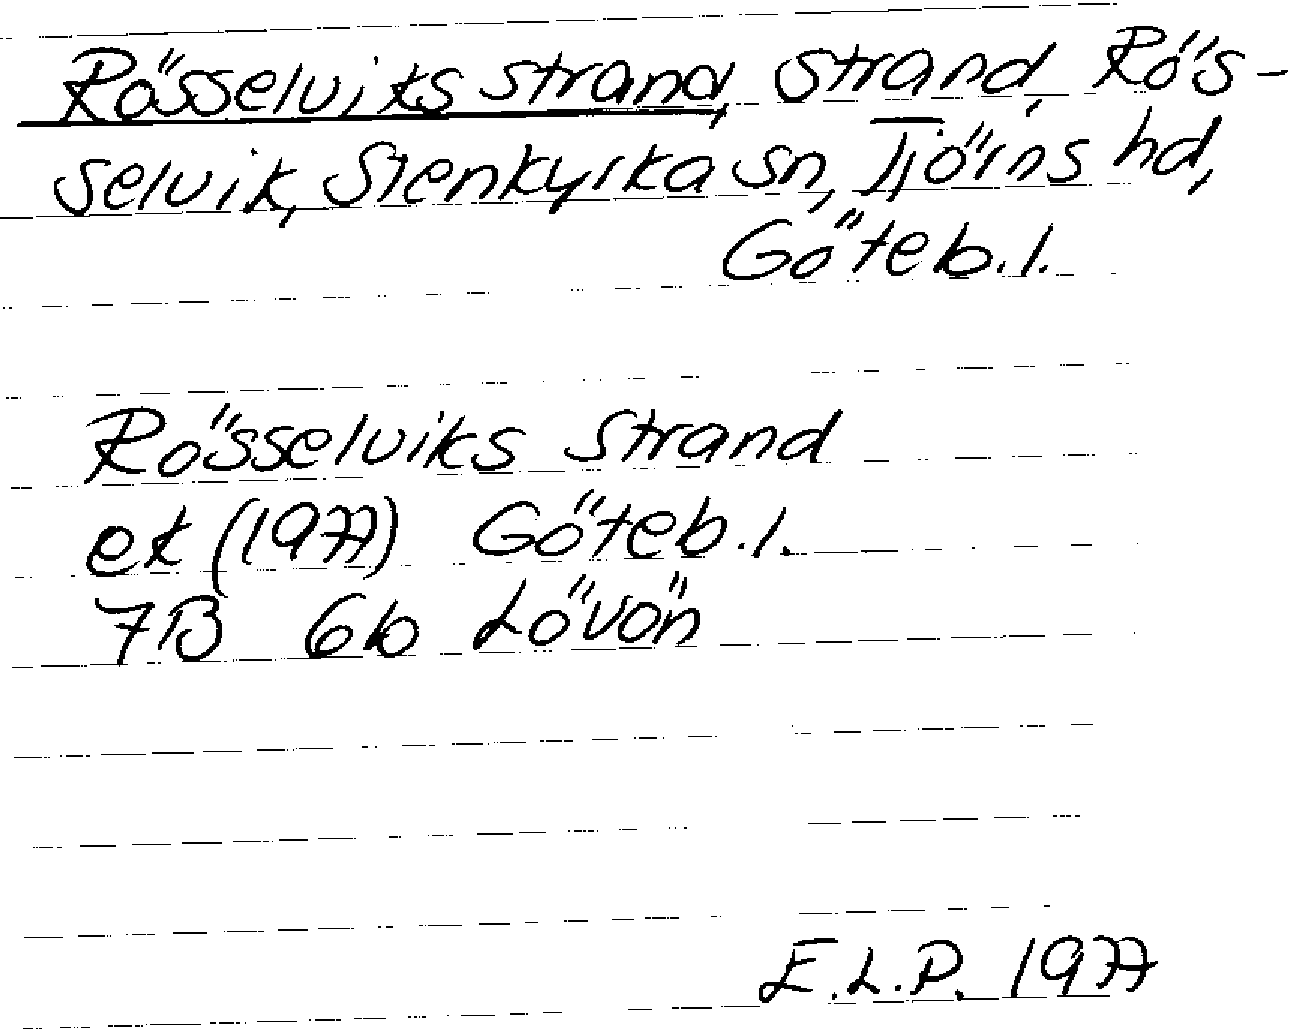 Rösselviks strand, strand, Rös-
selvik, Stenkyrka sn, Tjörns hd,
Göteb. l.
Rösselviks strand
ek (1977) Göteb. l.
7B 6b Lövön
E.L.P. 1977